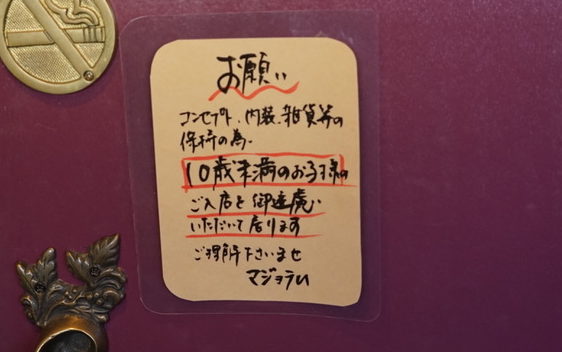 お願い
コンセプト、内装、雑貨等の
保持の為、
10歳未満のお子様の
ご入店を御遠慮
いただいて居ります
ご理解下さいませ
マジョラム